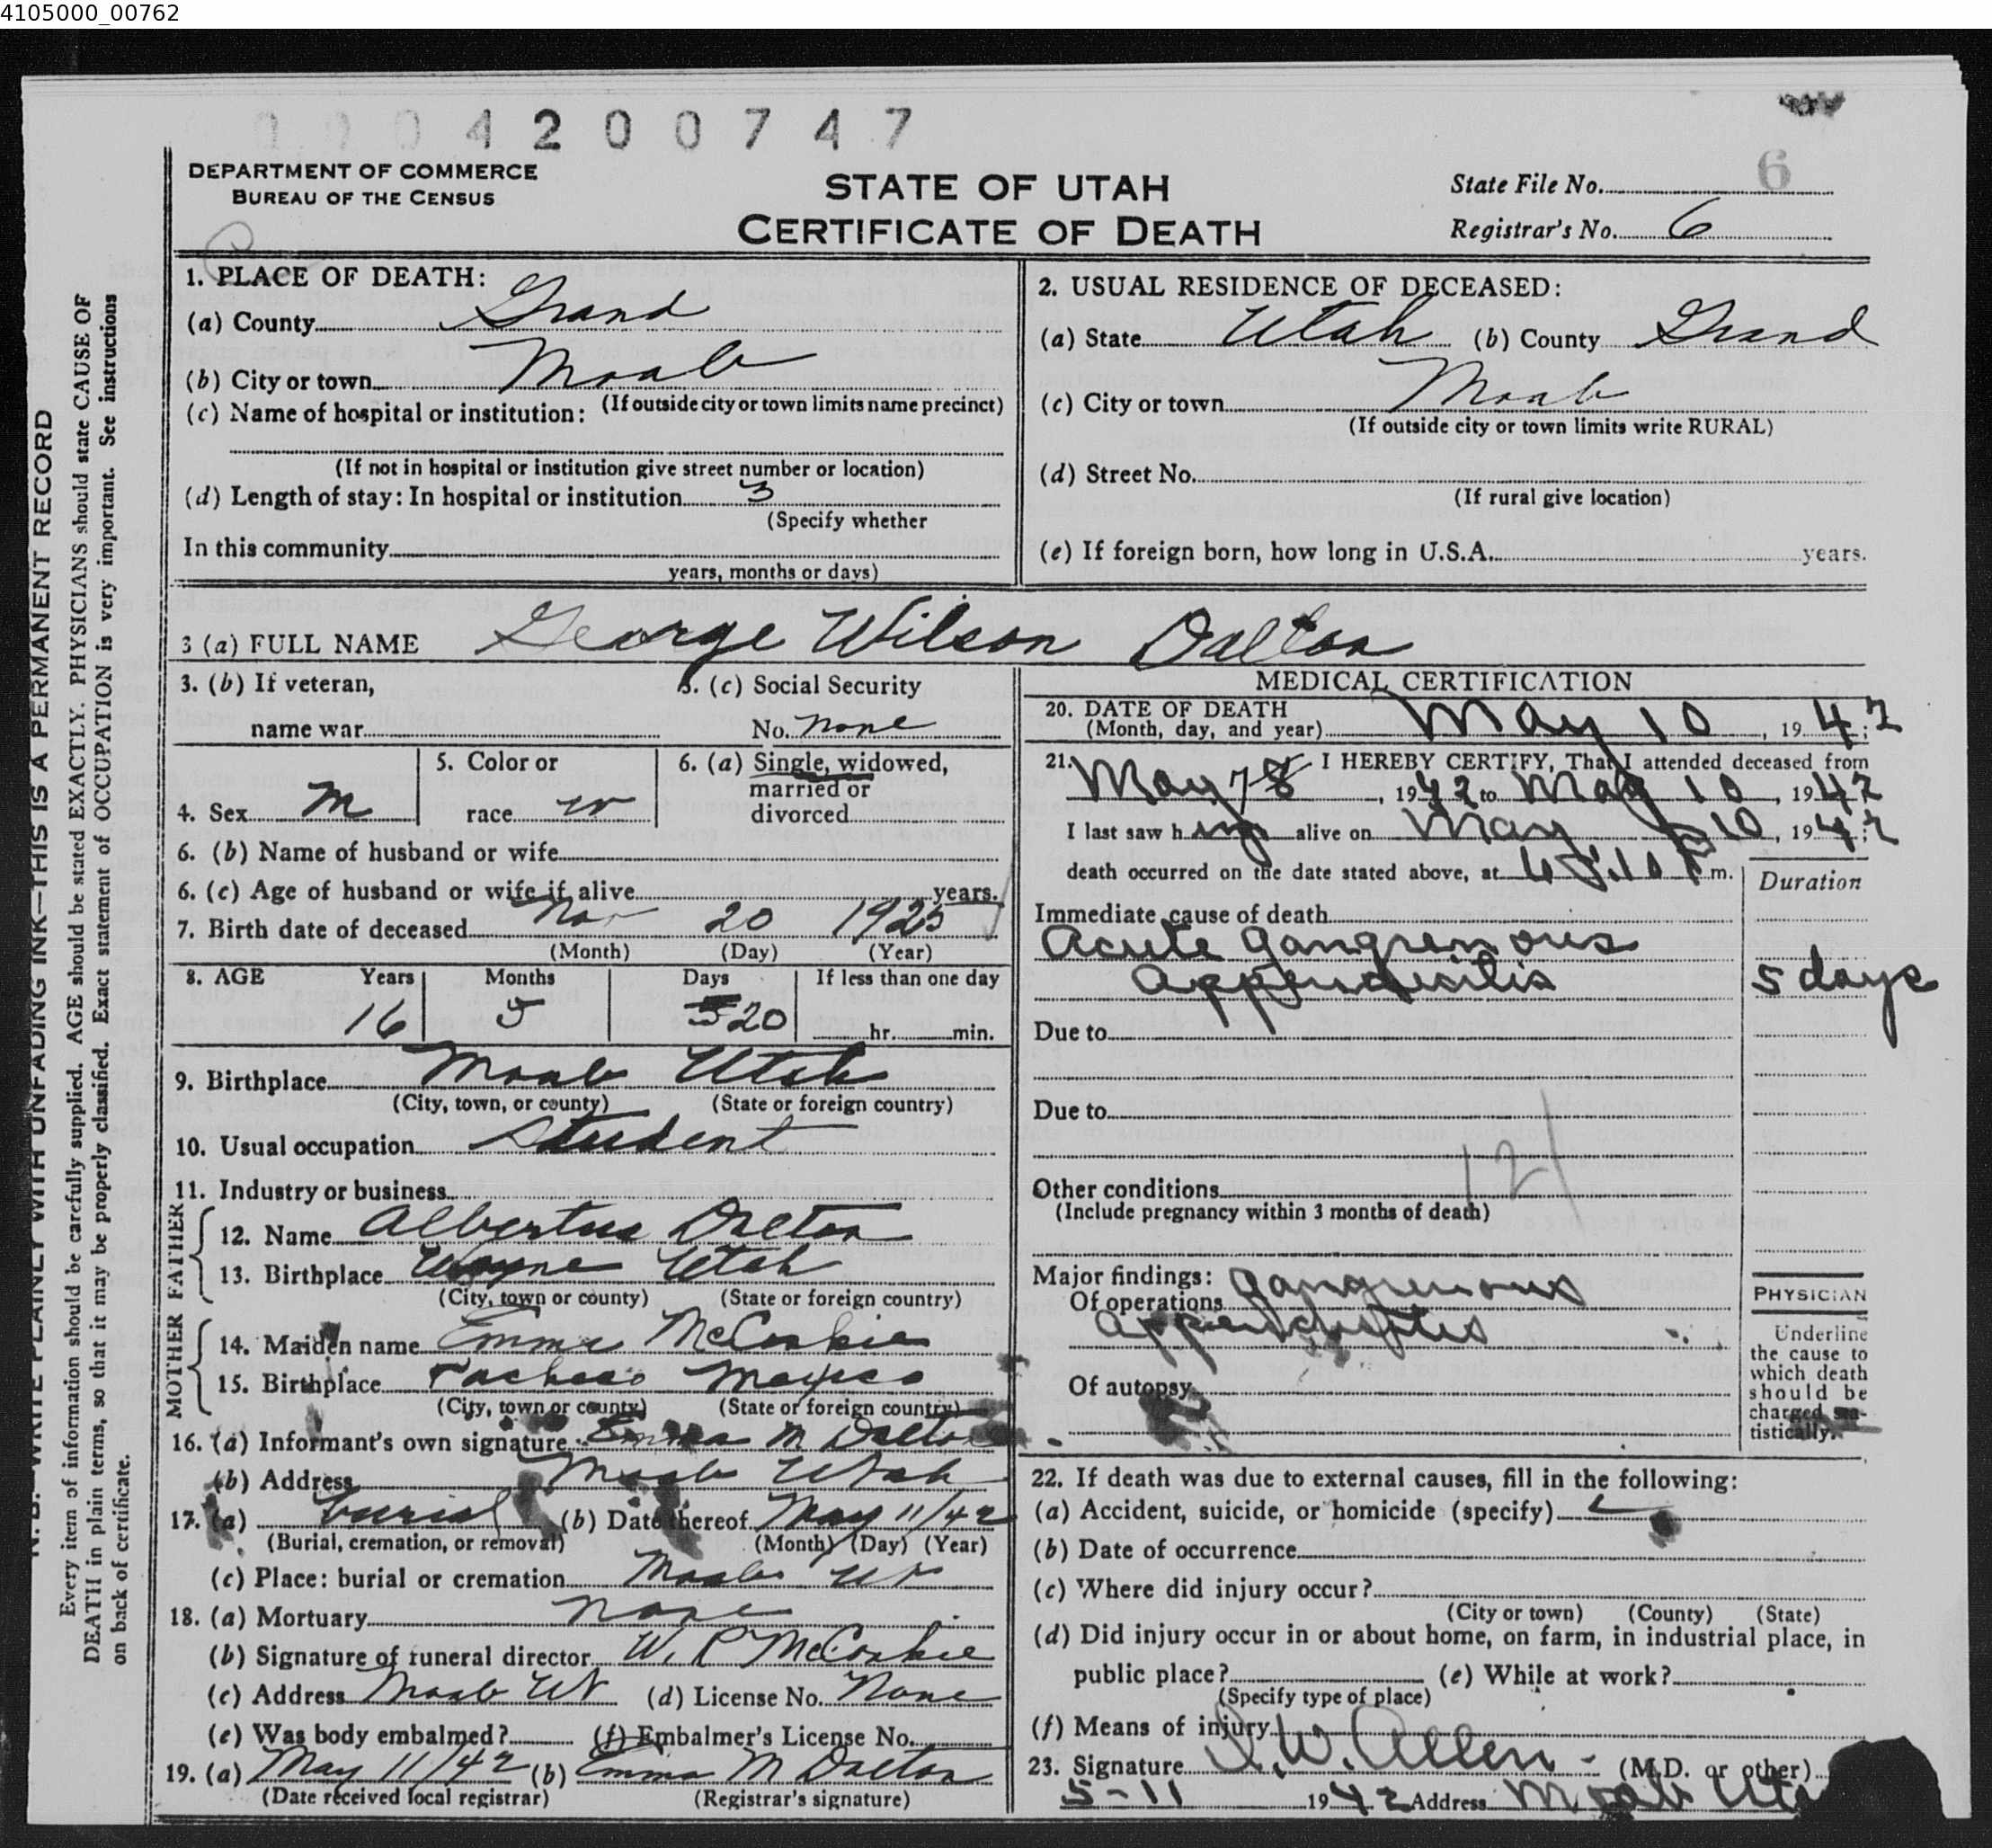 4105000_00762
0004200747
DEPARTMENT OF COMMERCE
BUREAU OF THE CENSUS
STATE OF UTAH
CERTIFICATE OF DEATH
State File No. 6
Registrar's No. 6
N. B.—WRITE PLAINLY WITH UNFADING INK—THIS IS A PERMANENT RECORD
Every item of information should be carefully supplied. AGE should be stated EXACTLY. PHYSICIANS should state CAUSE OF
DEATH in plain terms, so that it may be properly classified. Exact statement of OCCUPATION is very important. See instructions
on back of certificate.
1. PLACE OF DEATH:
(a) County Grand
(b) City or town Moab
(If outside city or town limits name precinct)
(c) Name of hospital or institution:
(If not in hospital or institution give street number or location)
(d) Length of stay: In hospital or institution 3
(Specify whether
In this community
years, months or days)
2. USUAL RESIDENCE OF DECEASED:
(a) State Utah (b) County Grand
(c) City or town Moab
(If outside city or town limits write RURAL)
(d) Street No.
(If rural give location)
(e) If foreign born, how long in U.S.A. years.
3 (a) FULL NAME George Wilson Dalton
3. (b) If veteran,
name war
3. (c) Social Security
No. none
4. Sex M
5. Color or
race W
6. (a) Single, widowed,
married or
divorced
6. (b) Name of husband or wife
6. (c) Age of husband or wife if alive years.
7. Birth date of deceased Nov 20 1925
(Month) (Day) (Year)
8. AGE Years Months Days If less than one day
16 5 20 hr. min.
9. Birthplace Moab Utah
(City, town, or county) (State or foreign country)
10. Usual occupation Student
11. Industry or business
FATHER
12. Name Albertus Dalton
13. Birthplace Wayne Utah
(City, town or county) (State or foreign country)
MOTHER
14. Maiden name Emma McConkie
15. Birthplace Pacheco Mexico
(City, town or county) (State or foreign country)
16. (a) Informant's own signature Emma M Dalton
(b) Address Moab Utah
17. (a) burial (b) Date thereof May 11/42
(Burial, cremation, or removal) (Month) (Day) (Year)
(c) Place: burial or cremation Moab Ut
18. (a) Mortuary none
(b) Signature of funeral director W. R McConkie
(c) Address Moab Ut (d) License No. None
(e) Was body embalmed? (f) Embalmer's License No.
19. (a) May 11/42 (b) Emma M Dalton
(Date received local registrar) (Registrar's signature)
MEDICAL CERTIFICATION
20. DATE OF DEATH
(Month, day, and year) May 10, 1942;
21. I HEREBY CERTIFY, That I attended deceased from
May 8, 1942 to May 10, 1942
I last saw h alive on May 10, 1942;
death occurred on the date stated above, at 10 P m.
Duration
Immediate cause of death
Acute gangrenous
Appendisitis 5 days
Due to
Due to
121
Other conditions
(Include pregnancy within 3 months of death)
Major findings:
Of operations gangrenous
Of autopsy
PHYSICIAN
Underline
the cause to
which death
should be
charged sta-
tistically.
22. If death was due to external causes, fill in the following:
(a) Accident, suicide, or homicide (specify)
(b) Date of occurrence
(c) Where did injury occur?
(City or town) (County) (State)
(d) Did injury occur in or about home, on farm, in industrial place, in
public place? (e) While at work?
(Specify type of place)
(f) Means of injury
23. Signature I. W. Allen (M.D. or other)
5-11 1942 Address Moab Utah